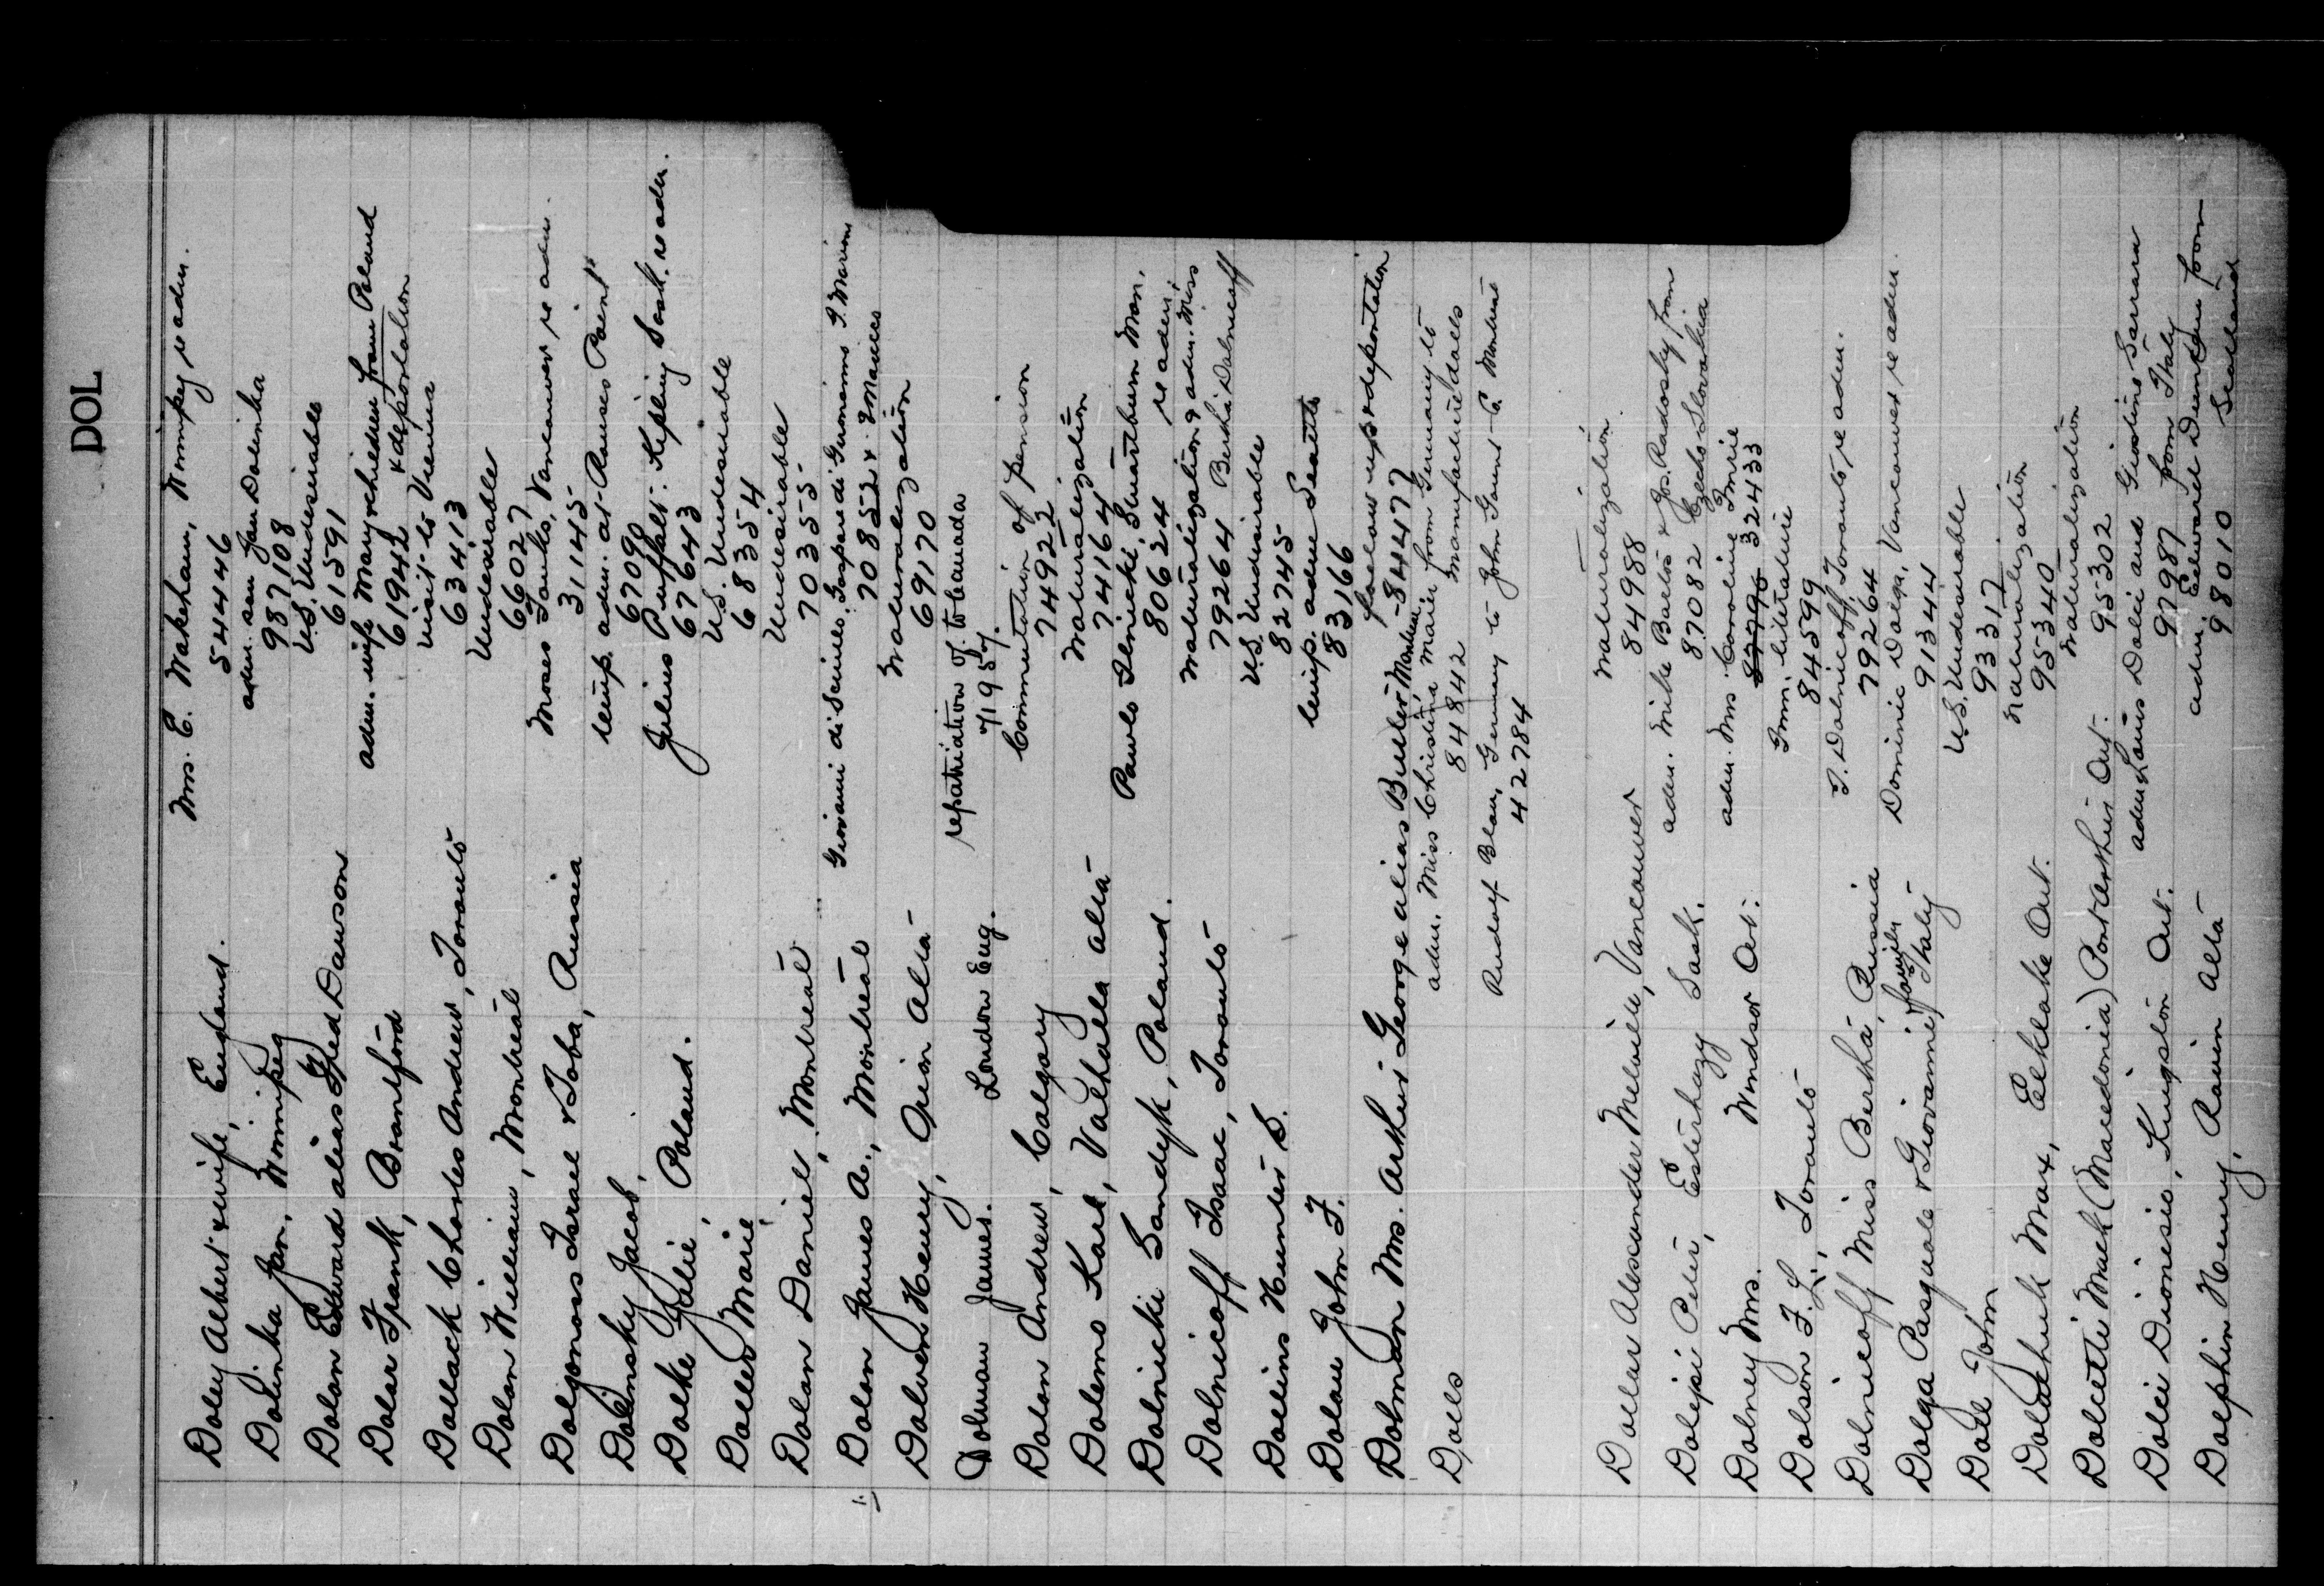 DOL
Doley Albert & wife, England. Mrs. E. Wakeham, Winnipeg re adm.
544446
Dolinka Jan, Winnipeg adm. son Jan Dolinka
987108
Dolan Edward alias Fred Dawson U.S. Undesirable
61591
Dolar Frank, Brantford adm. wife Mary & children from Poland
61942 & deportation
Dollack Charles Andrew, Toronto visit to Vienna
63413
Dolan William, Montreal Undesirable
66027
Dolgonoss Israel & Toba, Russia Moses Yanko, Vancouver re adm.
31145
Dolinsky Jacob, temp. adm. at Rouses Point
67090
Dolke Julie, Poland. Julius Puffalt Kipling Sask. re adm.
67643
Doller Marie, U.S. Undesirable
68354
Dolan Daniel, Montreal Undesirable
70355
Dolan James A., Montreal Giovanni di Scuilo, Gaspare di Giovannino I. Marino
70852 & E Manceo
Dolven Henry, Orion Alta Naturalization
69170
Dolman James. London Eng. repatriation of. to Canada
71957.
Dolan Andrew, Calgary Commutation of pension
74922
Dolemo Karl, Valhalla Alta Naturalization
74164
Dolnicki Sandyk, Poland. Pawlo Ilnicki, Swartburn Man.
80624 re adm.
Dolnicoff Isaac, Toronto Naturalization & adm. Miss
79264 Bertha Dolnicoff
Dollins Hunter S. U.S. Undesirable
82745
Dolan John F. temp. adm. Seattle
83166
Dolman Mrs. Arthur George alias Butler Montreal follow up & deportation
- 84477
Dolls adm. Miss Christina Maier from Germany to
84842 manufacture dolls
Rudolf Blau, Germany to John Gount Co. Montreal
42784
Dollar Alexander Melville, Vancouver naturalization
84988
Dolejsi Peter, Esterhazy Sask. adm. Mike Barlos & Jos. Radosky from
87082 Czecho Slovakia
Dolney Mrs. Windsor Ont. adm. Mrs. Caroline Imrie
324433
Dolson F. L., Toronto Imm. literature
84599
Dolnicoff Miss Bertha, Russia I. Dolnicoff, Toronto re adm.
79264
Dolga Pasquale & Giovanni & family Italy Dominic Dolga, Vancouver re adm.
91344
Doll John U.S. Undesirable
93317
Dolatchuk Max, Elklake Ont. naturalization
95340
Dolcetti Muck (Macedonia) Port Arthur Ont. naturalization
95302
Dolci Dionisio, Kingston Ont. adm. Louis Dolci and Giostino Serrara
97987 from Italy
Dolphin Henry, Rowin Alta adm. Edward Duenton from
98010 Scotland